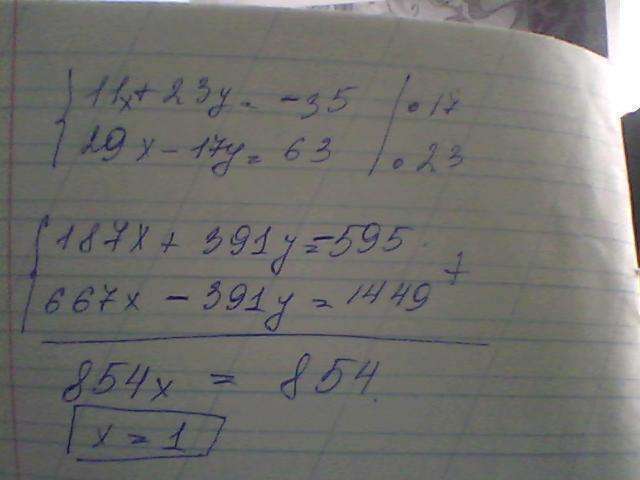 11x + 23y = -35 | • 17
29x - 17y = 63 | • 23
187x + 391y = -595
667x - 391y = 1449 +
854x = 854.
x = 1